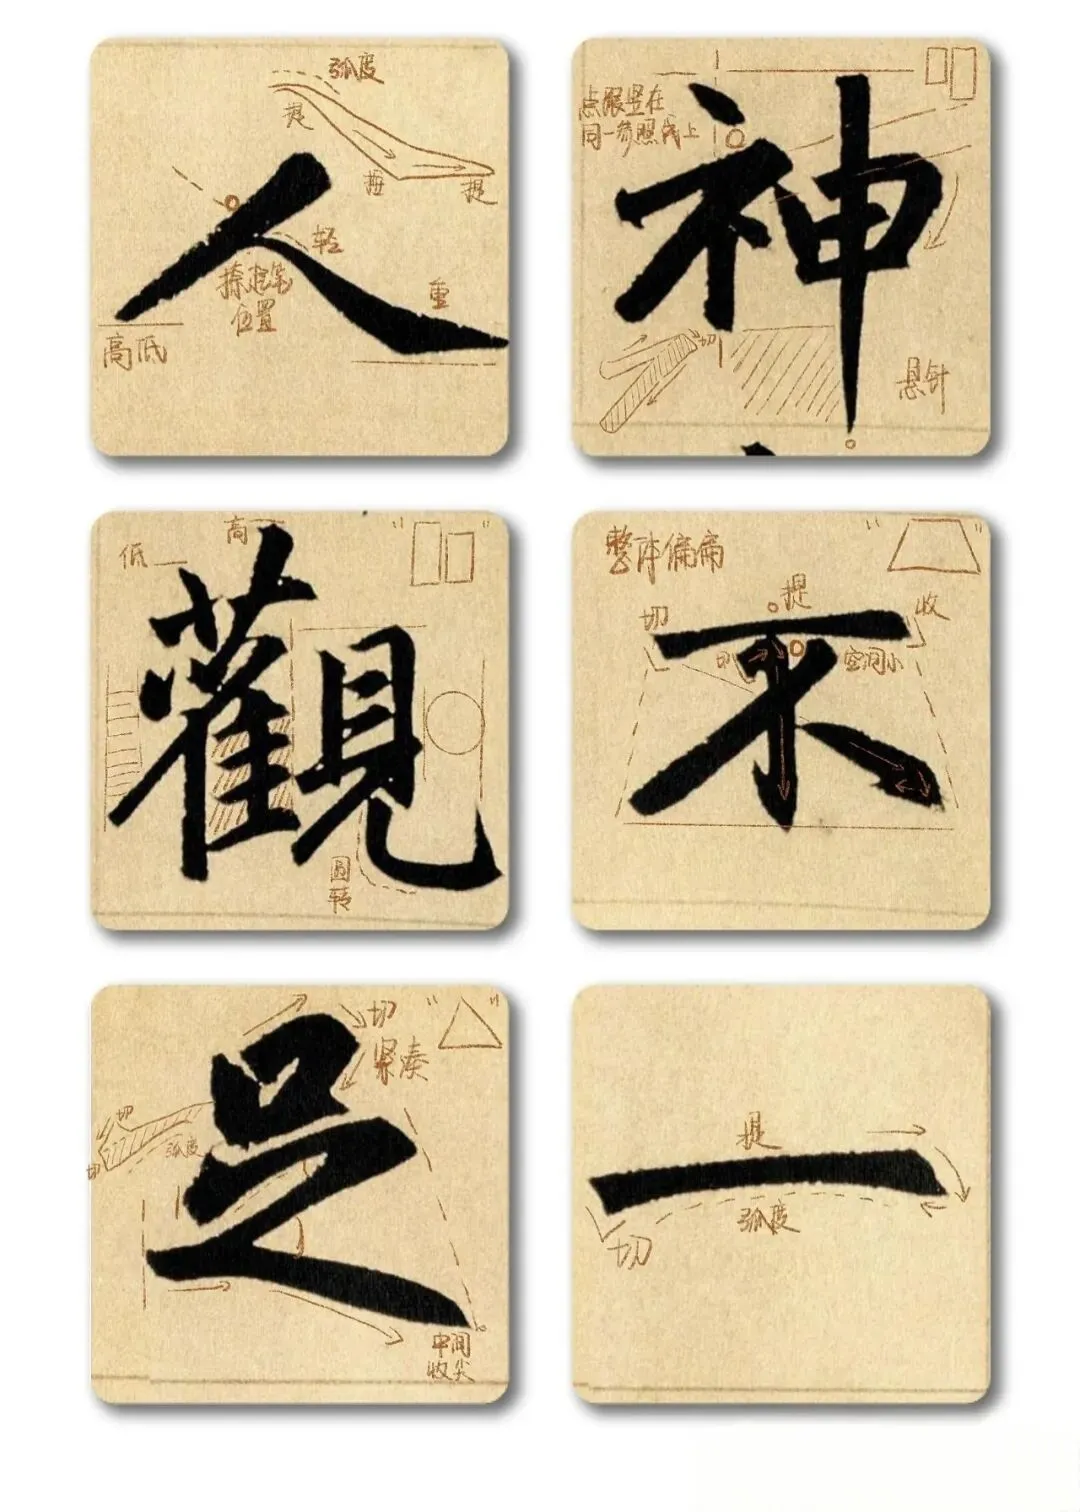 弧度
提
按
提
人
轻
捺起笔
位置
重
高低
点跟竖在
同一参照线上
神
切
悬针
高
低
觀
圆
转
整体偏扁
提
切
收
切
空间小
不
切
紧凑
切
弧度
切
足
中间
收尖
提
一
弧度
切